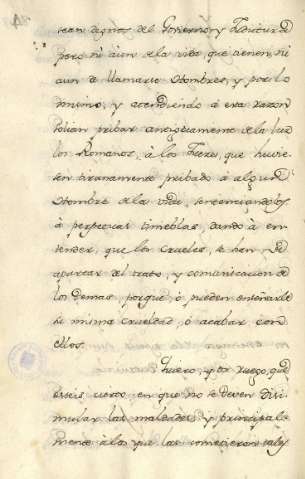 sean dignos del Govierno, y Tributo, d
pero ni aun de la vida que tienen, ni
aun de llamarse Hombres, y por lo
mismo, y atendiendo á esta razon
solian pribar antiguamente de la luz
los Romanos, á los Jueces, que huvie-
sen tiranamente pribado á algun
Hombre de la vida, sentenciandolos
á perpetuas tinieblas, dando á en-
tender, que los crueles, se han de
apartar del trato, y comunicacion de
los demas, porque, ó pueden enseñarle
su misma crueldad ó acabar con
ellos.
Quiero, y os ruego, que
esteis cierto, en que no se deven disi-
mular las maldades, y principal-
mente á los que las cometieron tales